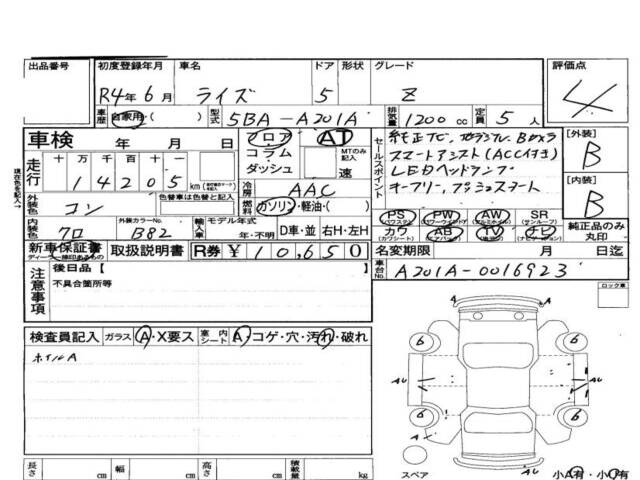 出品番号 初度登録年月 車名 ドア 形状 グレード 評価点
R4年6月 ライズ 5 Z 4
車歴 自家用・( ) 型式 5BA-A201A 排気量 1200cc 定員 5人
車検 年 月 日 フロア AT
コラム MTのみ記入
ダッシュ 速
走行 十 万 千 百 十 一
14205 km
セールスポイント
純正TC、地デジTV、Bカメラ
スマートアシスト(ACC付き)
LEDヘッドランプ
オープリー、プッシュスタート
[外装] B
[内装] B
現車色を記入→
外装色 コン 色替車は色替と記入
冷房 AAC
燃料 ガソリン・軽油・( )
内装色 クロ 外装カラーNo. B82 輸入車 モデル年式 年・不明 D車・並 右H・左H
PS PW AW SR
(パワステ) (パワーウィンドウ) (アルミホイル) (サンルーフ)
カワ AB TV ナビ
(カワシート) (エアバック) (テレビ) (ナビゲーション)
純正品のみ丸印
新車保証書 取扱説明書 R券 ¥10,650 名変期限 月 日迄
車台No. A201A-0016923
注意事項
後日品【
不具合箇所等
ロック車
検査員記入 ガラス A・X要ス 室内シート A・コゲ・穴・汚れ・破れ
ホイルA
6 6
AU AU
6 6
AU
スペア 小A有・小U有
長さ cm 幅 cm 高さ cm 積載量 kg